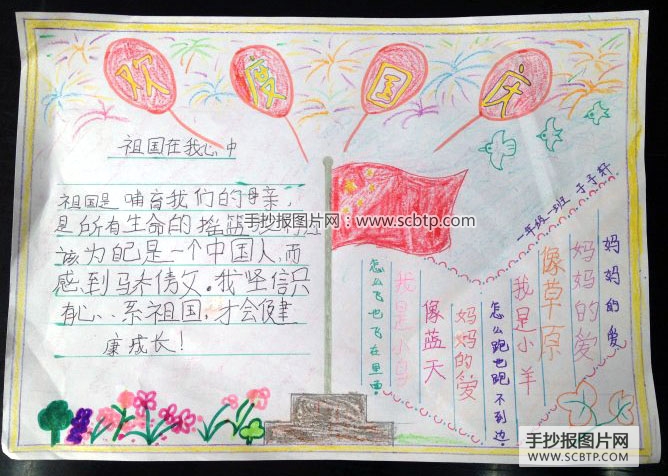 欢度国庆
祖国在我心中
祖国是哺育我们的母亲，
是所有生命的摇篮
手抄报图片网：www.scbtp.com
该为自己是一个中国人，而
感到
我坚信只
有心
系祖国，才会健
康成长！
一年级一班
妈妈的爱
妈妈的爱
像草原
我是小羊
怎么跑也跑不到边。
妈妈的爱
像蓝天
我是小鸟
怎么飞也飞在里面。
手抄报图片网
WWW.SCBTP.COM